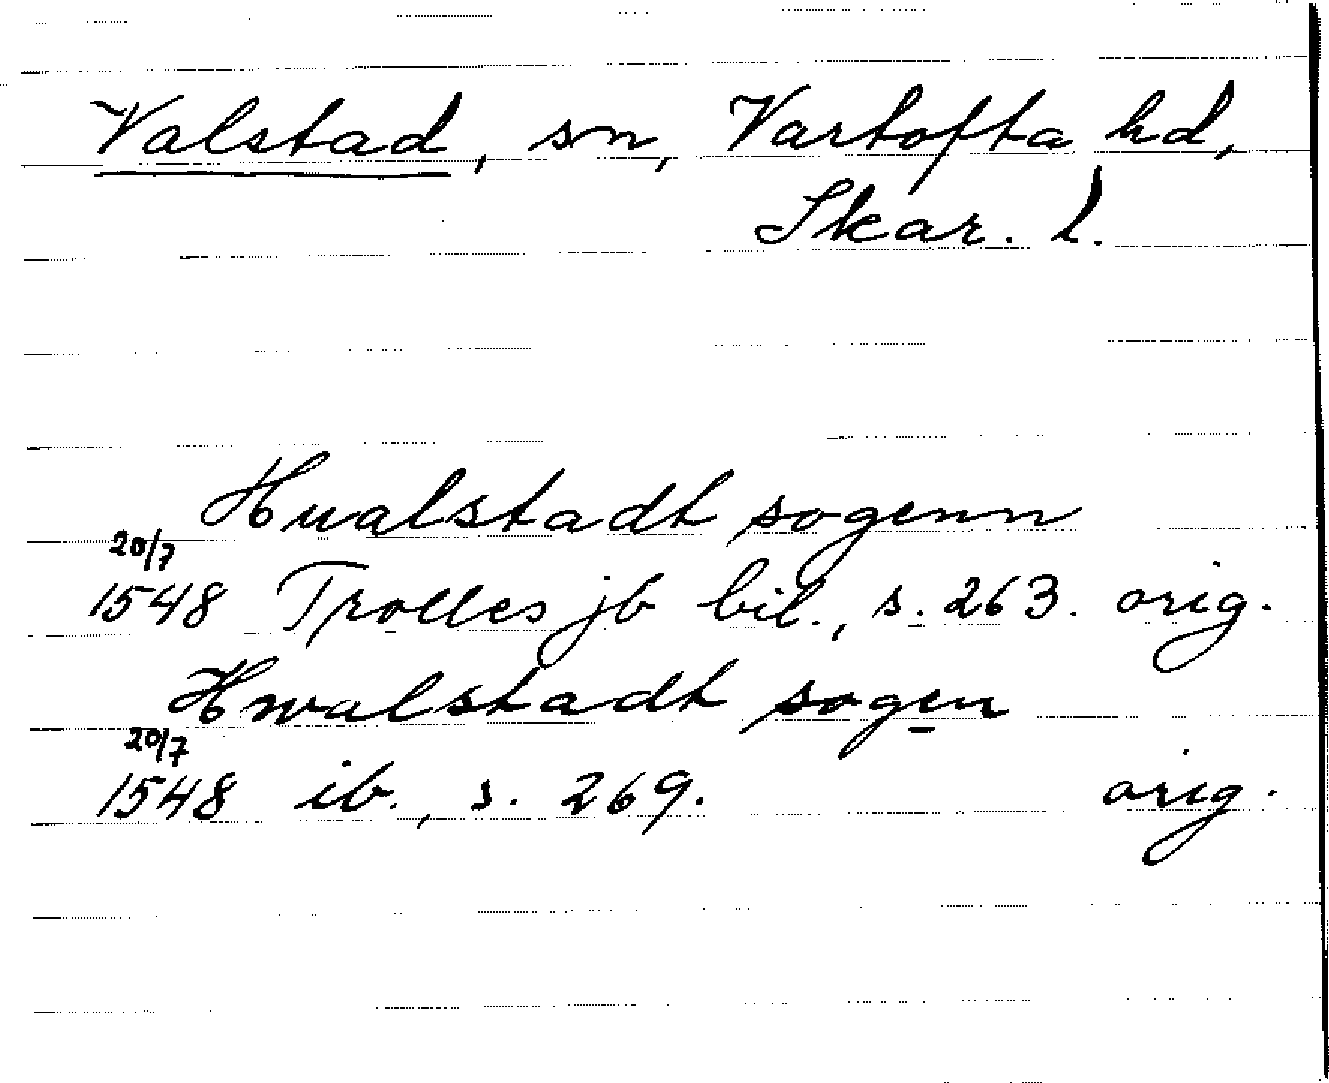 Valstad, sn, Vartofta hd,
Skar. l.
Hualstadt sogenn
20/7
1548 Trolles jb bil., s. 263. orig.
Hwalstadt sogen
20/7
1548 ib., s. 269. orig.